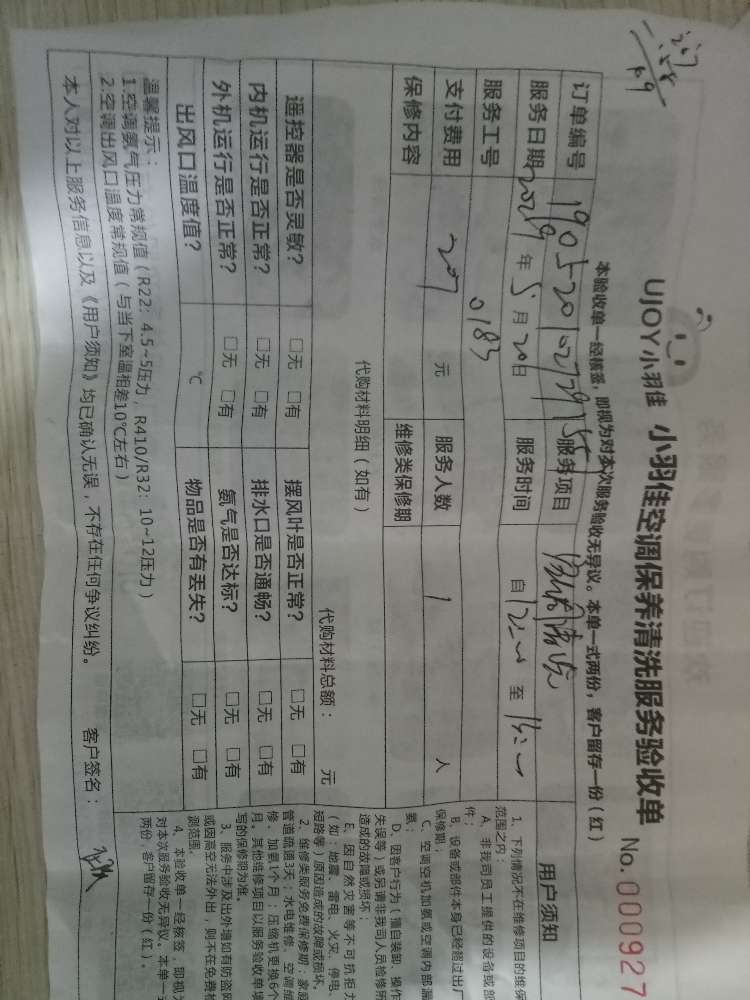 UJOY小羽佳 小羽佳空调保养清洗服务验收单 No.000927
本验收单一经核签，即视为对本次服务验收无异议。本单一式两份，客户留存一份（红）
订单编号 服务项目
服务日期 2019 年 5 月 20 日 服务时间 自 至
服务工号 0183
支付费用 207 元 服务人数 1 人
保修内容 维修类保修期
代购材料明细（如有） 代购材料总额： 元
遥控器是否灵敏？ □无 □有 摆风叶是否正常？ □无 □有
内机运行是否正常？ □无 □有 排水口是否通畅？ □无 □有
外机运行是否正常？ □无 □有 氨气是否达标？ □无 □有
出风口温度值？ ℃ 物品是否有丢失？ □无 □有
温馨提示：
1.空调氨气压力常规值（R22：4.5~5压力，R410/R32：10~12压力）
2.空调出风口温度常规值（与当下室温相差10℃左右）
本人对以上服务信息以及《用户须知》均已确认无误，不存在任何争议纠纷。 客户签名：
用户须知
1、下列情况不在维修项目的维保
范围之内：
A、非我司员工提供的设备或部
件；
B、设备或部件本身已经超过出厂
保修期；
C、空调空机加氨或空调内部漏
氨；
D、因客户行为（擅自装卸、操作
失误等）或另请非我司人员检修所
造成的故障或损坏；
E、因自然灾害等不可抗拒力
（如：地震、雷电、火灾、停电、
短路等）原因造成的故障或损坏。
2、维修类服务免费保修期：家庭
管道疏通3天；水电维修、空调维
修、加氨1个月；压缩机更换6个
月。其他维修项目以服务验收单填
写的保修期为准。
3、服务中涉及出外墙如有防盗网
或因高空无法外出，则不在免费检
测范围。
4、本验收单一经核签，即视为
对本次服务验收无异议。本单一式
两份，客户留存一份（红）。